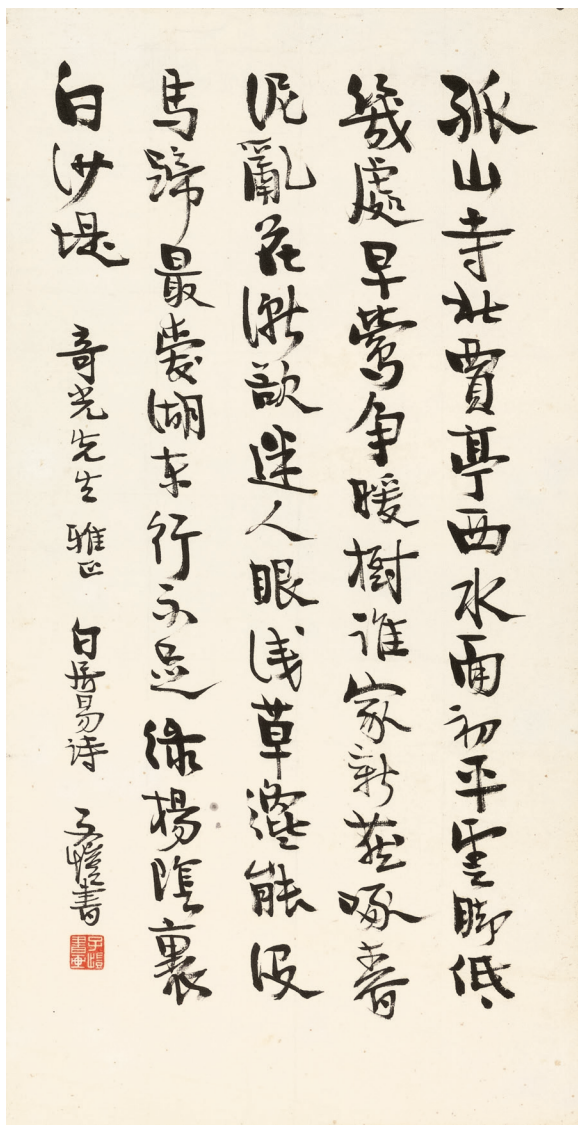 孤山寺北賈亭西水面初平雲脚低
幾處早鶯争暖樹誰家新燕啄春
泥亂花漸欲迷人眼浅草纔能没
馬蹄最愛湖东行不足綠楊陰裏
白沙堤 奇光先生雅正 白居易诗 子愷書